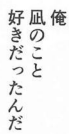 俺
凪のこと
好きだったんだ